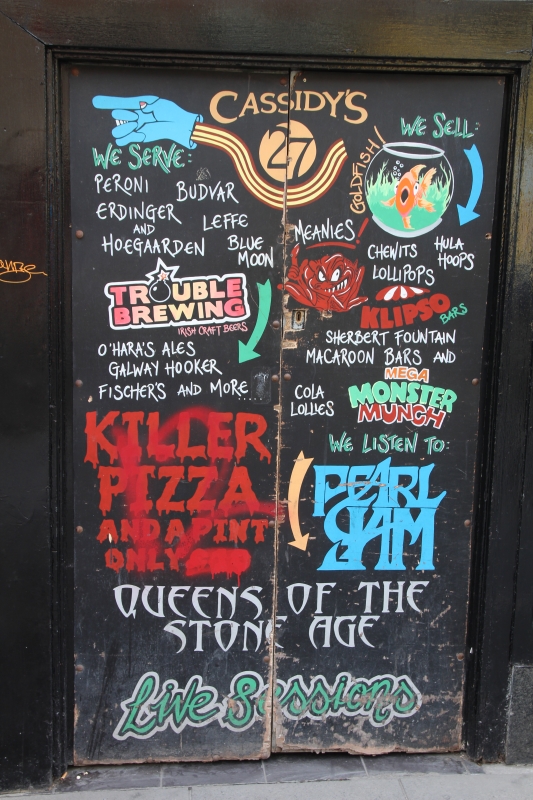 CASSIDY'S
27
WE SERVE:
PERONI
BUDVAR
ERDINGER
LEFFE
AND
HOEGAARDEN
BLUE
MOON
TROUBLE
BREWING
IRISH CRAFT BEERS
O'HARA'S ALES
GALWAY HOOKER
FISCHER'S AND MORE.....
KILLER
PIZZA
AND A PINT
ONLY
WE SELL:
GOLDFISH!
MEANIES!
CHEWITS
HULA
HOOPS
LOLLIPOPS
KLIPSO
BARS
SHERBET FOUNTAIN
MACAROON BARS AND
MEGA
MONSTER
MUNCH
COLA
LOLLIES
WE LISTEN TO:
PEARL
JAM
QUEENS OF THE
STONE AGE
Live Sessions